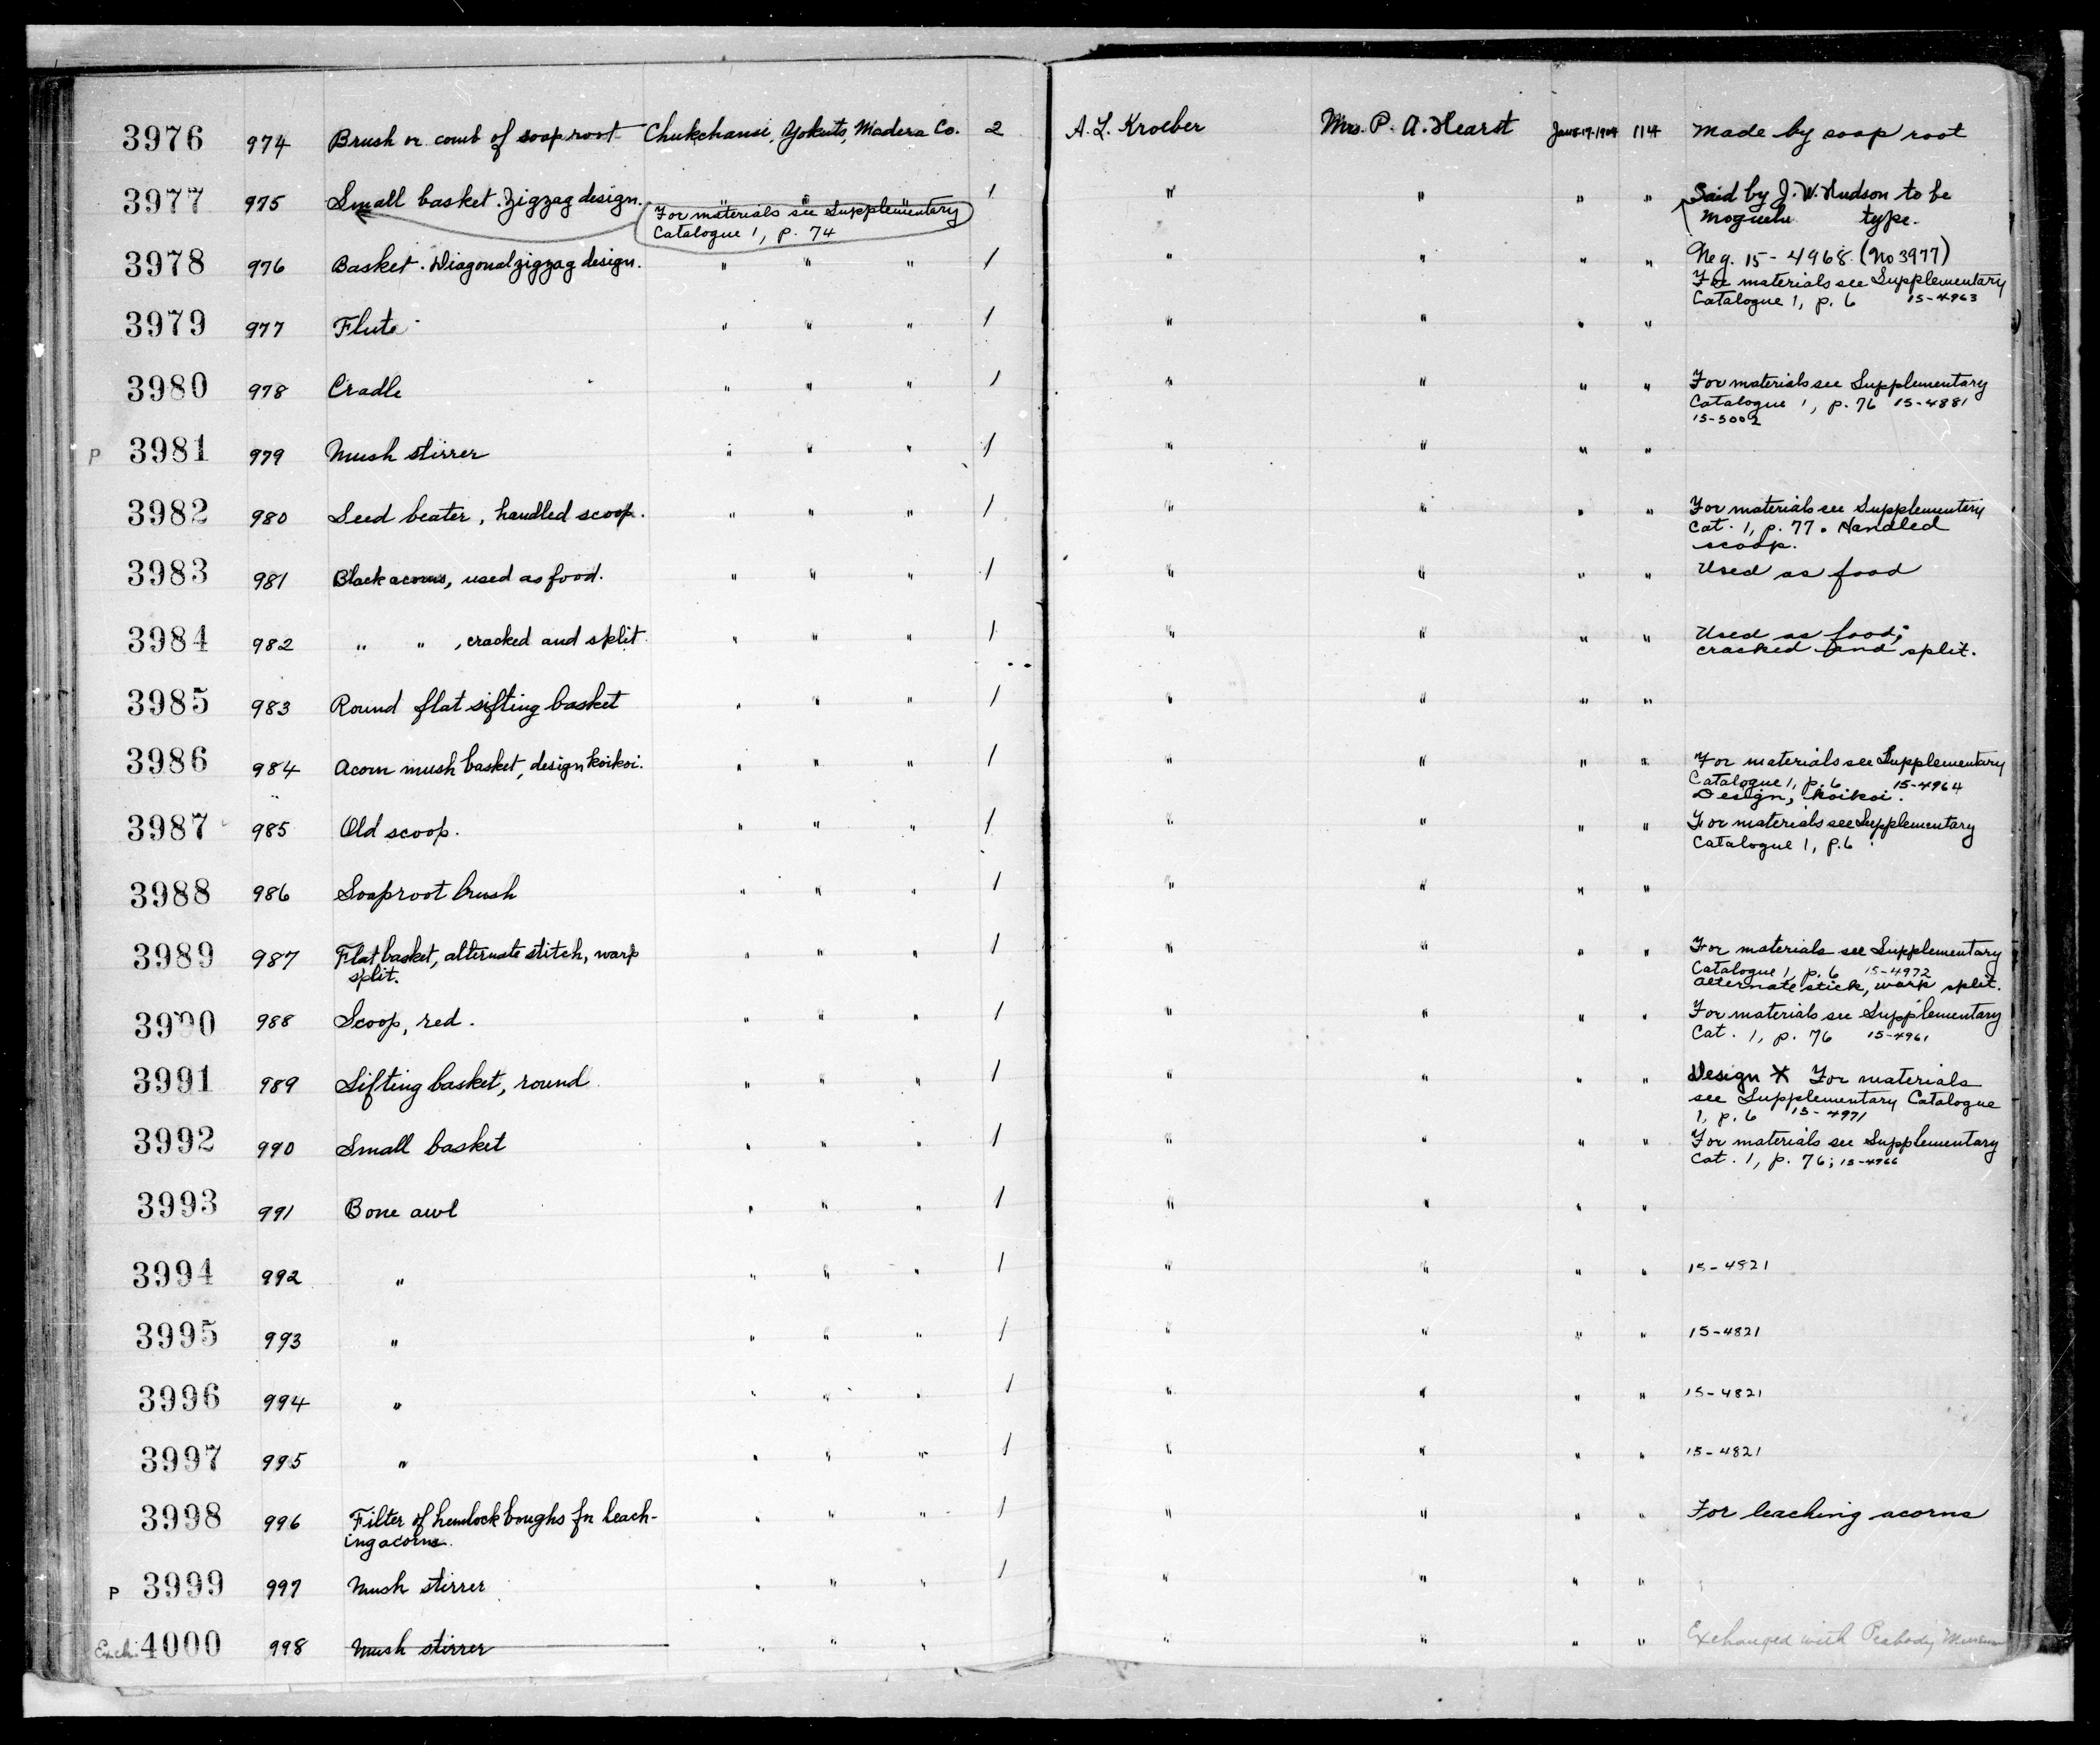 3976 974 Brush or comb of soap root Chukchansi, Yokuts, Madera Co. 2 A. L. Kroeber Mrs. P. A. Hearst 114 Made by soap root
3977 975 Small basket. Zigzag design. " " " 1 " " " " Said by J. W. Hudson to be
For materials see Supplementary
Catalogue 1, p. 74
type.
3978 976 Basket. Diagonal zigzag design. " " " 1 " " " " Neg. 15-4968 (No 3977)
For materials see Supplementary
Catalogue 1, p. 6 15-4963
3979 977 Flute " " " 1 " " " "
3980 978 Cradle " " " 1 " " " " For materials see Supplementary
Catalogue 1, p. 76 15-4881
15-5002
P 3981 979 Mush stirrer " " " 1 " " " "
3982 980 Seed beater, handled scoop. " " " 1 " " " " For materials see Supplementary
Cat. 1, p. 77. Handled
scoop.
3983 981 Black acorns, used as food. " " " 1 " " " " Used as food
3984 982 " " , cracked and split " " " 1 " " " " Used as food;
cracked and split.
3985 983 Round flat sifting basket " " " 1 " " " "
3986 984 Acorn mush basket, design koikoi. " " " 1 " " " " For materials see Supplementary
Catalogue 1, p. 6 15-4964
Design, koikoi.
3987 985 Old scoop. " " " 1 " " " " For materials see Supplementary
Catalogue 1, p. 6
3988 986 Soaproot brush " " " 1 " " " "
3989 987 Flat basket, alternate stitch, warp " " " 1 " " " " For materials see Supplementary
split.
Catalogue 1, p. 6 15-4972
alternate stick, warp split.
3990 988 Scoop, red. " " " 1 " " " " For materials see Supplementary
Cat. 1, p. 76 15-4961
3991 989 Sifting basket, round " " " 1 " " " " Design X For materials
see Supplementary Catalogue
1, p. 6 15-4971
3992 990 Small basket " " " 1 " " " " For materials see Supplementary
Cat. 1, p. 76; 15-4966
3993 991 Bone awl " " " 1 " " " "
3994 992 " " " " 1 " " " " 15-4821
3995 993 " " " " 1 " " " " 15-4821
3996 994 " " " " 1 " " " " 15-4821
3997 995 " " " " 1 " " " " 15-4821
3998 996 Filter of hemlock boughs for leach- " " " 1 " " " " For leaching acorns
ing acorns.
P 3999 997 Mush stirrer " " " 1 " " " "
4000 998 Mush stirrer " " " " " " " Exchanged with Peabody Museum